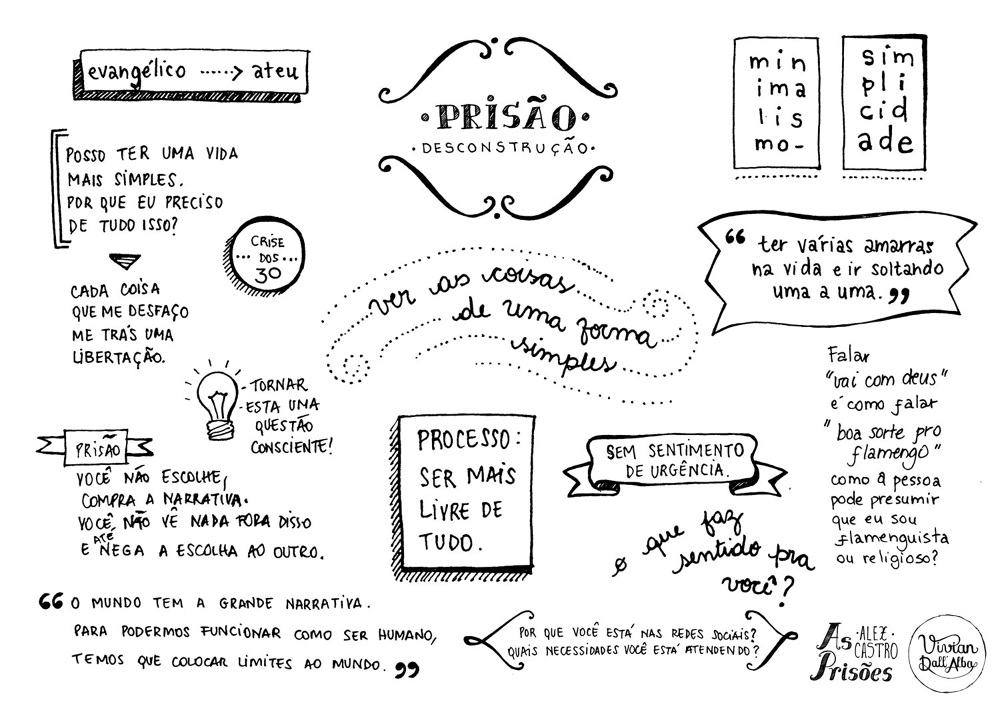 evangélico ......> ateu
• PRISÃO •
• DESCONSTRUÇÃO •
min
ima
lis
mo-
sim
pli
cid
ade
POSSO TER UMA VIDA
MAIS SIMPLES.
POR QUE EU PRECISO
DE TUDO ISSO?
CRISE
DOS
30
CADA COISA
QUE ME DESFAÇO
ME TRÁS UMA
LIBERTAÇÃO.
ver as coisas
de uma forma
simples
“ ter várias amarras
na vida e ir soltando
uma a uma. ”
TORNAR
ESTA UMA
QUESTÃO
CONSCIENTE!
PRISÃO
VOCÊ NÃO ESCOLHE,
COMPRA A NARRATIVA.
VOCÊ NÃO VÊ NADA FORA DISSO
E ATÉ NEGA A ESCOLHA AO OUTRO.
PROCESSO:
SER MAIS
LIVRE DE
TUDO.
SEM SENTIMENTO
DE URGÊNCIA.
o que faz
sentido pra
você?
Falar
"vai com deus"
é como falar
"boa sorte pro
flamengo"
como a pessoa
pode presumir
que eu sou
flamenguista
ou religioso?
“ O MUNDO TEM A GRANDE NARRATIVA.
PARA PODERMOS FUNCIONAR COMO SER HUMANO,
TEMOS QUE COLOCAR LIMITES AO MUNDO. ”
POR QUE VOCÊ ESTÁ NAS REDES SOCIAIS?
QUAIS NECESSIDADES VOCÊ ESTÁ ATENDENDO?
As
Prisões
• ALEX
CASTRO
Vivian
Dall'Alba